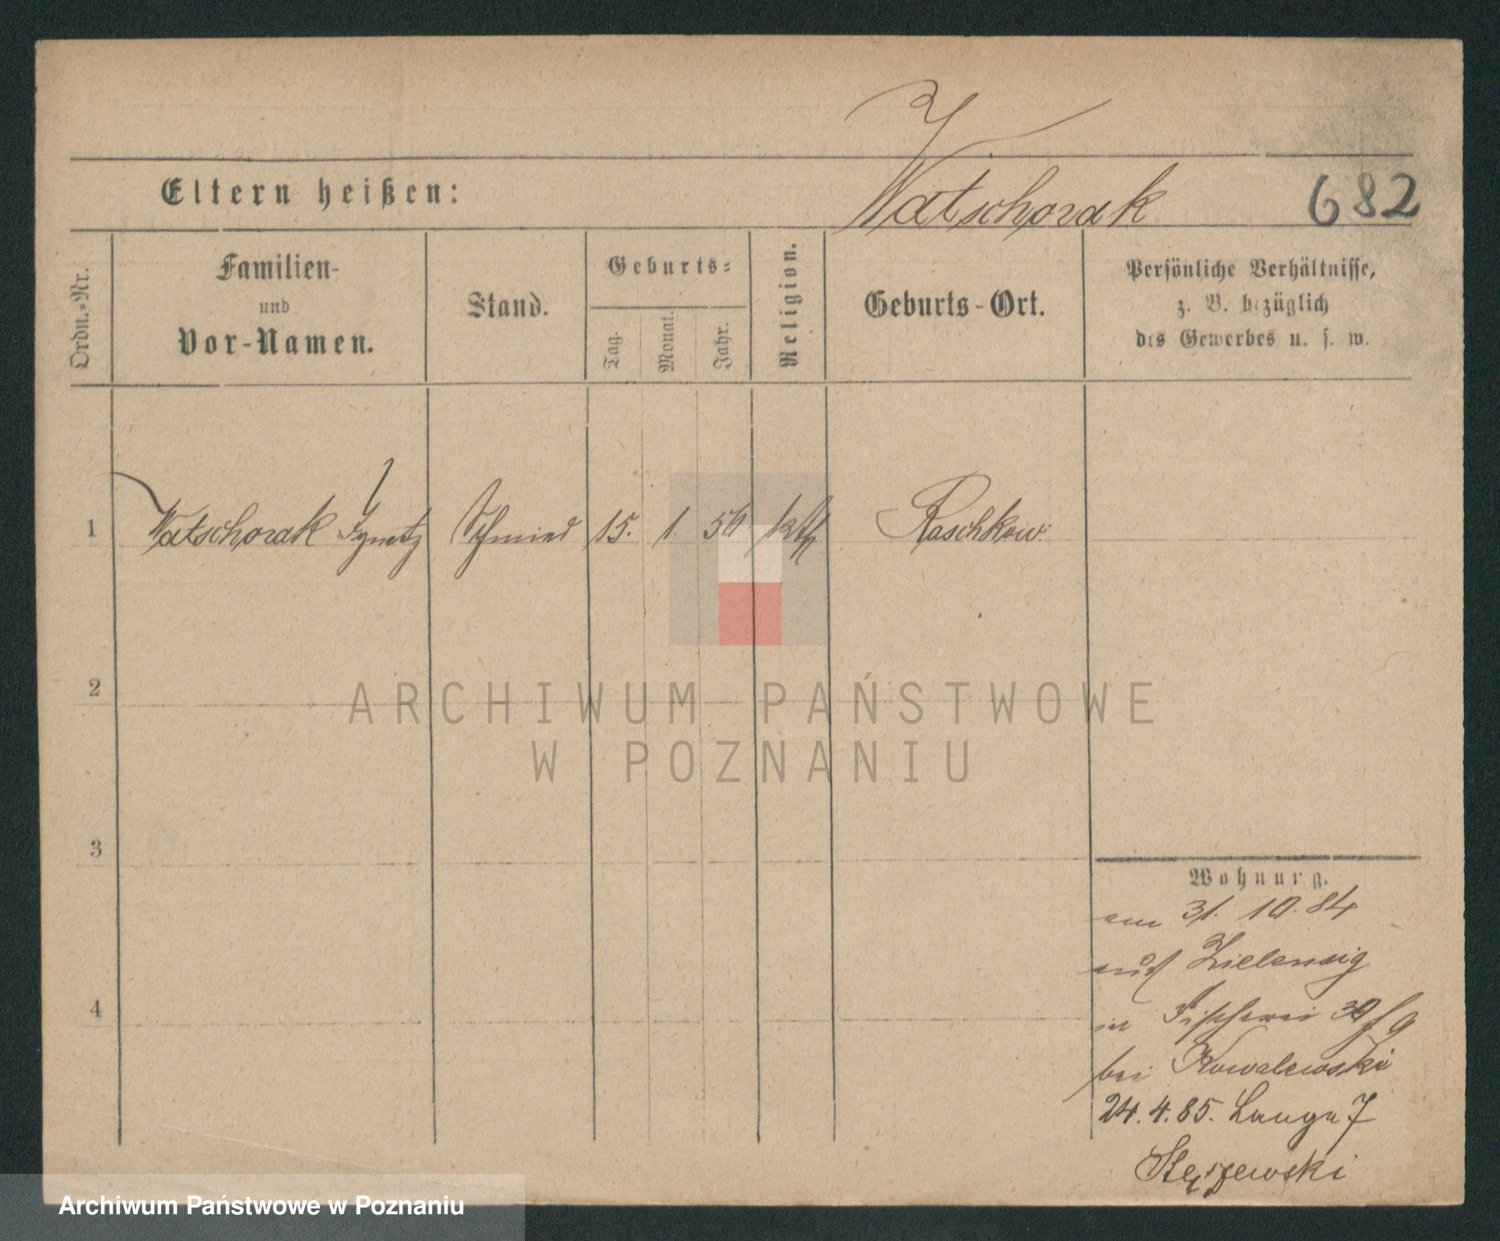 Eltern heißen:
Watschorak
682
Ordn.-Nr.
Familien-
und
Vor-Namen.
Stand.
Geburts-
Tag.
Monat.
Jahr.
Religion.
Geburts-Ort.
Persönliche Verhältnisse,
z. B. bezüglich
des Gewerbes u. s. w.
1 Watschorak Ignatz Schmied 15. 1. 56 kth Raschkow
2
3
4
Wohnung.
am 31. 10. 84
aus Zielenzig
in Fischerei
bei Kowalewski
24. 4. 85. Lange 7
Stęszewski
ARCHIWUM PAŃSTWOWE
W POZNANIU
Archiwum Państwowe w Poznaniu